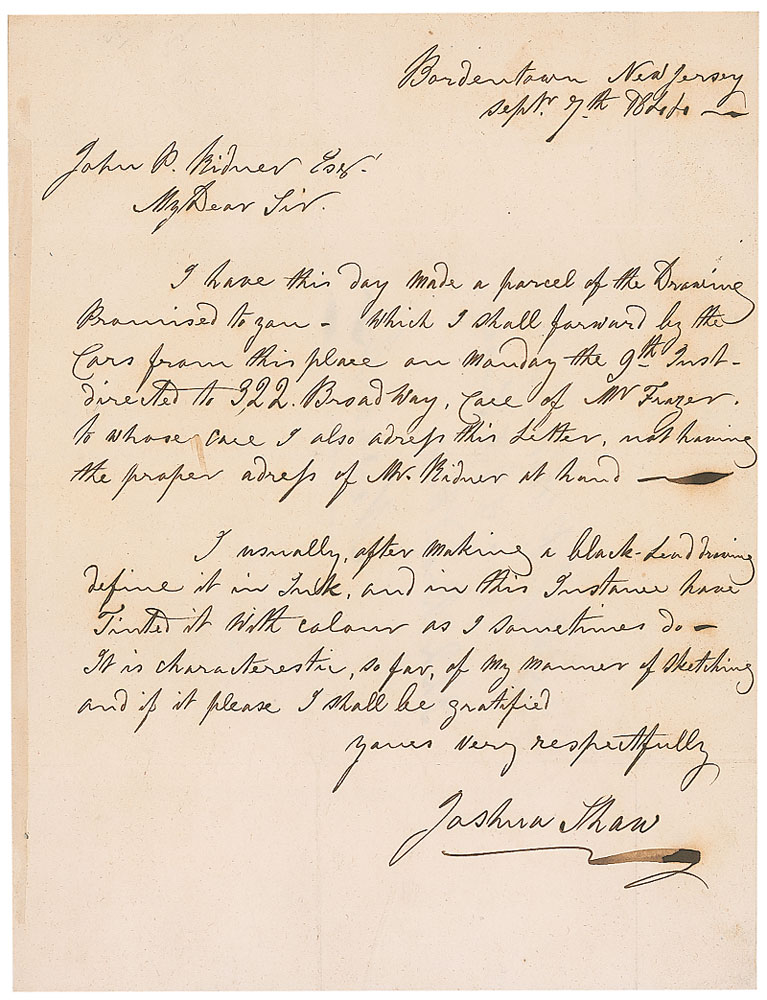 Bordentown New Jersey
Septr. 7th 1844 —
John P. Ridner Esqr.
My Dear Sir.
I have this day made a parcel of the Drawing
Promised to you - Which I shall forward by the
Cars from this place on Monday the 9th Inst-
directed to 322. BroadWay, Care of Mr Frazer.
to whose care I also adress this Letter, not having
the proper adress of Mr. Ridner at hand —
I usually, after making a black-Lead drawing
define it in Ink, and in this Instance have
Tinted it With colour as I sometimes do -
It is characterestic, so far, of my manner of sketching
and if it please I shall be gratified
yours very respectfully
Joshua Shaw